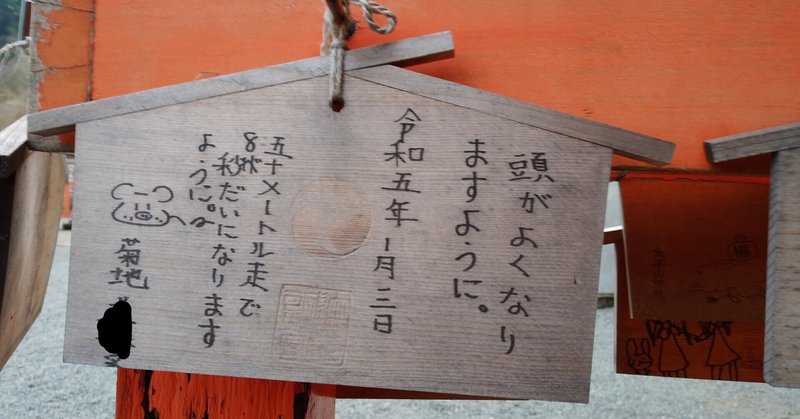 頭がよくなり
ますように。
令和五年1月三日
五十メートル走で
8秒だいになります
ように。
菊地